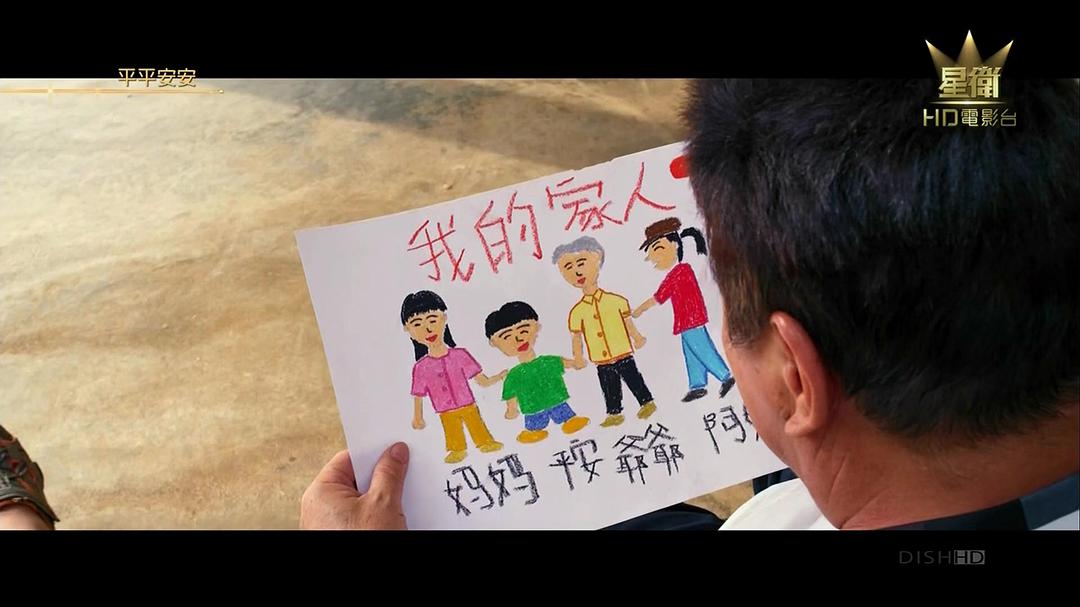 平平安安
星衛
HD電影台
我的家人
妈妈 平安 爺爺 阿
DISHHD